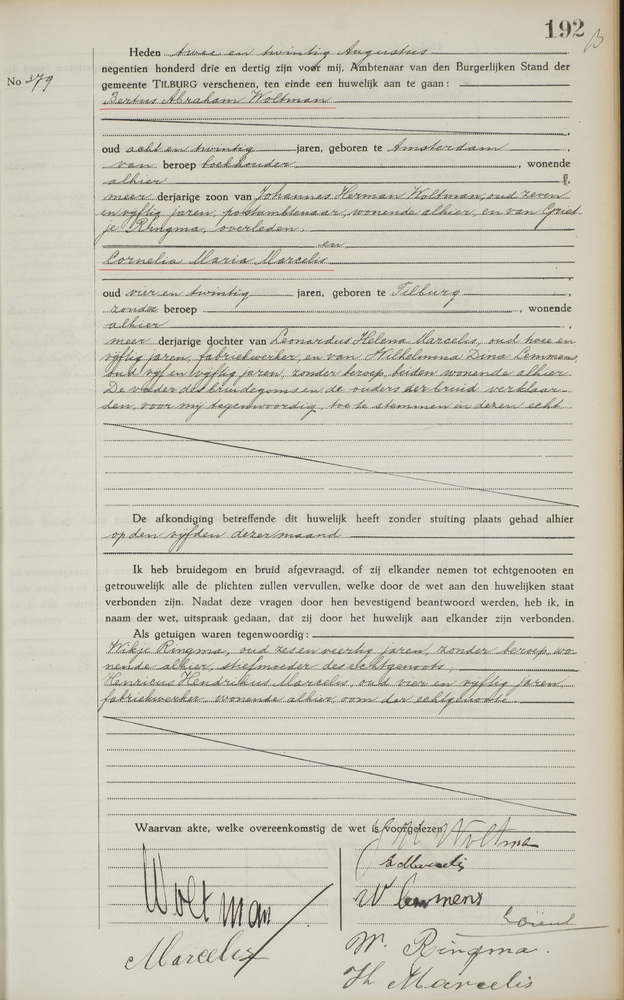 192
No 379
Heden twee en twintig Augustus
negentien honderd drie en dertig zijn voor mij, Ambtenaar van den Burgerlijken Stand der
gemeente TILBURG verschenen, ten einde een huwelijk aan te gaan:
Bertus Abraham Woltman
oud acht en twintig jaren, geboren te Amsterdam,
van beroep boekhouder, wonende
alhier
meer derjarige zoon van Johannes Herman Woltman, oud zeven
en vijftig jaren, postambtenaar, wonende alhier, en van Griet-
je Ringma, overleden.
en
Cornelia Maria Marcelis
oud vier en twintig jaren, geboren te Tilburg,
zonder beroep, wonende
alhier,
meer derjarige dochter van Leonardus Helena Marcelis, oud
vijftig jaren, fabriekwerker, en van Wilhelmina Dina Lemmens,
oud vijf en vijftig jaren, zonder beroep, beiden wonende alhier.
De vader des bruidegoms en de ouders der bruid verklaar-
den, voor mij tegenwoordig, toe te stemmen in dezen echt.
De afkondiging betreffende dit huwelijk heeft zonder stuiting plaats gehad alhier
op den vijfden dezer maand
Ik heb bruidegom en bruid afgevraagd, of zij elkander nemen tot echtgenooten en
getrouwelijk alle de plichten zullen vervullen, welke door de wet aan den huwelijken staat
verbonden zijn. Nadat deze vragen door hen bevestigend beantwoord werden, heb ik, in
naam der wet, uitspraak gedaan, dat zij door het huwelijk aan elkander zijn verbonden.
Als getuigen waren tegenwoordig:
Wikje Ringma, oud zes en veertig jaren, zonder beroep, wo-
nende alhier, stiefmoeder des echtgenoots;
Henricus Hendrikus Marcelis, oud vier en vijftig jaren,
fabriekwerker, wonende alhier, oom der echtgenoote.
Waarvan akte, welke overeenkomstig de wet is voorgelezen.
J H Woltman
Marcelis
Woltman
W Lemmens
Marcelis
W. Ringma.
Th Marcelis